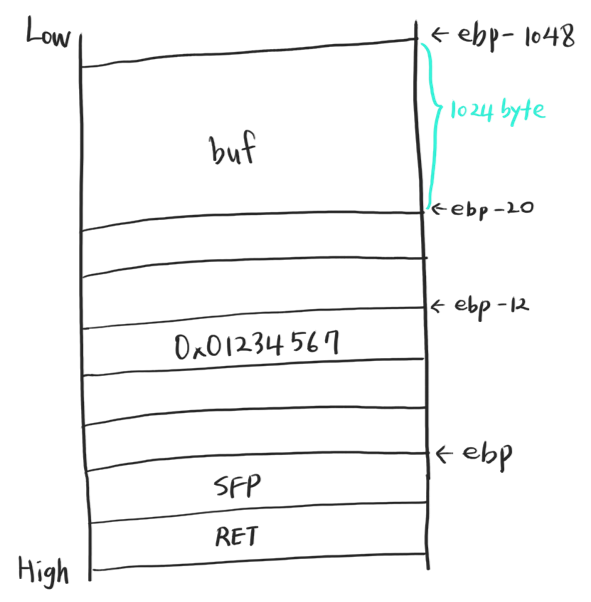 Low
← ebp-1048
1024 byte
buf
← ebp-20
← ebp-12
0x01234567
← ebp
SFP
RET
High